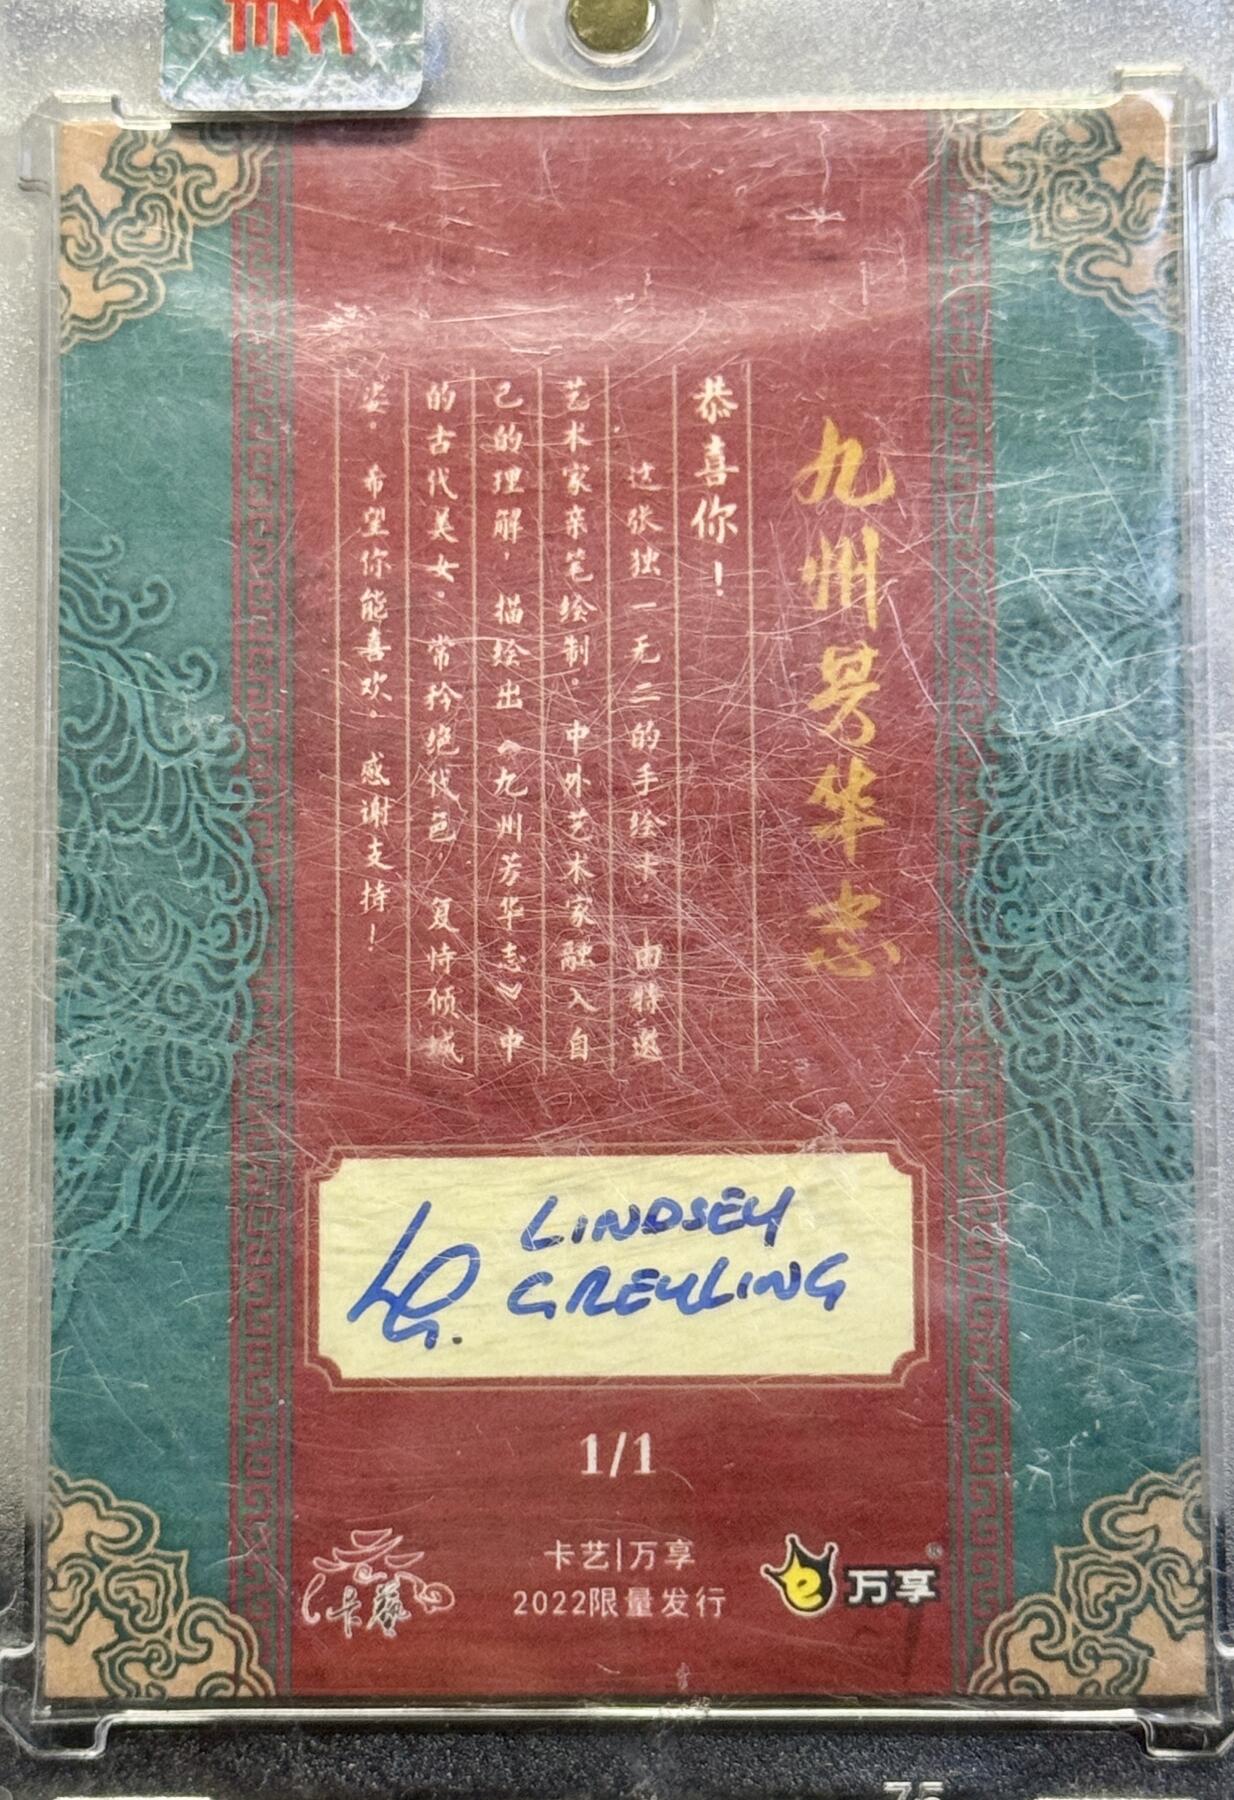 九州芳华志
恭喜你！
这张独一无二的手绘卡，由特邀
艺术家亲笔绘制。中外艺术家融入自
己的理解，描绘出《九州芳华志》中
的古代美女。常矜绝代色，复恃倾城
姿。希望你能喜欢。感谢支持！
LG.
LINDSEY
GREYLING
1/1
卡艺
卡艺|万享
2022限量发行
e万享
75